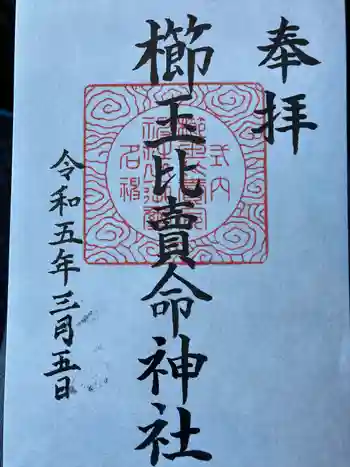 奉拝
櫛玉比賣命神社
令和五年三月五日
式内